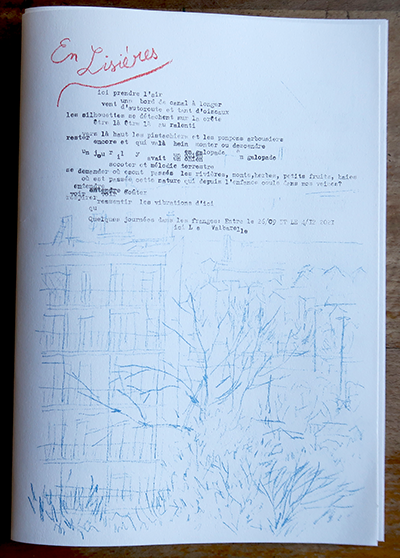 En Lisières
ici prendre l'air
un bord de canal à longer
vent d'autoroute et tant d'oiseaux
les silhouettes se détachent sur la crête
être là être là au ralenti
vers là haut les pistachiers et les pompos arbousiers
rester encore et qui valà hein monter ou descendre
un jour il y avait un galopade
scooter et mélodie terrestre
se demander où sont passés les rivières, monts, herbes, petits fruits, baies
où est passée cette nature qui depuis l'enfance coule dans nos veines?
entendre
voir goûter
respirer ressentir les vibrations d'ici
qu
Quelques journées dans les franges: Entre le 26/09 ET LE 4/12
ici La Valbarelle